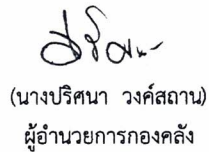 (นางปริศนา วงค์สถาน)
ผู้อำนวยการกองคลัง